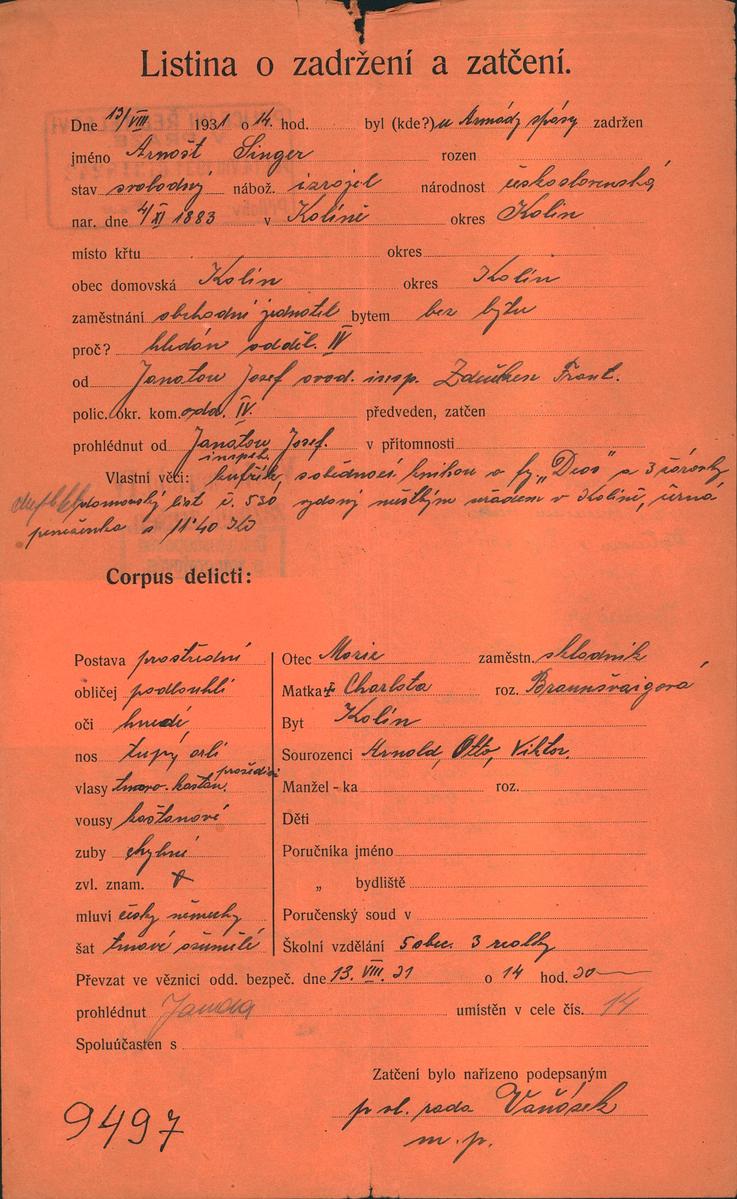 Listina o zadržení a zatčení.
Dne 13/VIII 1931 o 14. hod. byl (kde?) u Armády spásy zadržen
jméno Arnošt Singer rozen
stav svobodný nábož. izrael národnost československá
nar. dne 4/XI 1883 v Kolíně okres Kolín
místo křtu okres
obec domovská Kolín okres Kolín
zaměstnání obchodní jednatel bytem bez bytu
proč? hledán odděl. IV
od Janatou Josef insp. Frant.
polic. okr. kom. odd. IV. předveden, zatčen
prohlédnut od Janatou Josef. v přítomnosti
inspekt.
Vlastní věci: kufřík s knihou o fy. „Deos" a 3
domovský list č. 530 vydaný městským úřadem v Kolíně, černá
peněženka s 11·40 Kč
Corpus delicti:
Postava prostřední
obličej podlouhlí
oči hnedé
nos tupý orlí
prošediv
vlasy tmavo-kaštan.
vousy kaštanové
zuby chybné
zvl. znam.
mluví česky německy
šat tmavé
Otec Moric zaměstn. skladník
Matka Charlota roz. Braunšvaigová
Byt Kolín
Sourozenci Arnold, Otto, Viktor.
Manžel - ka roz.
Děti
Poručníka jméno
„ bydliště
Poručenský soud v
Školní vzdělání 5 obec. 3 reálky
Převzat ve věznici odd. bezpeč. dne 13. VIII. 31 o 14 hod. 30
prohlédnut Janda umístěn v cele čís. 14
Spoluúčasten s
Zatčení bylo nařízeno podepsaným
p vl. rada Vaňásek
m. p.
9497